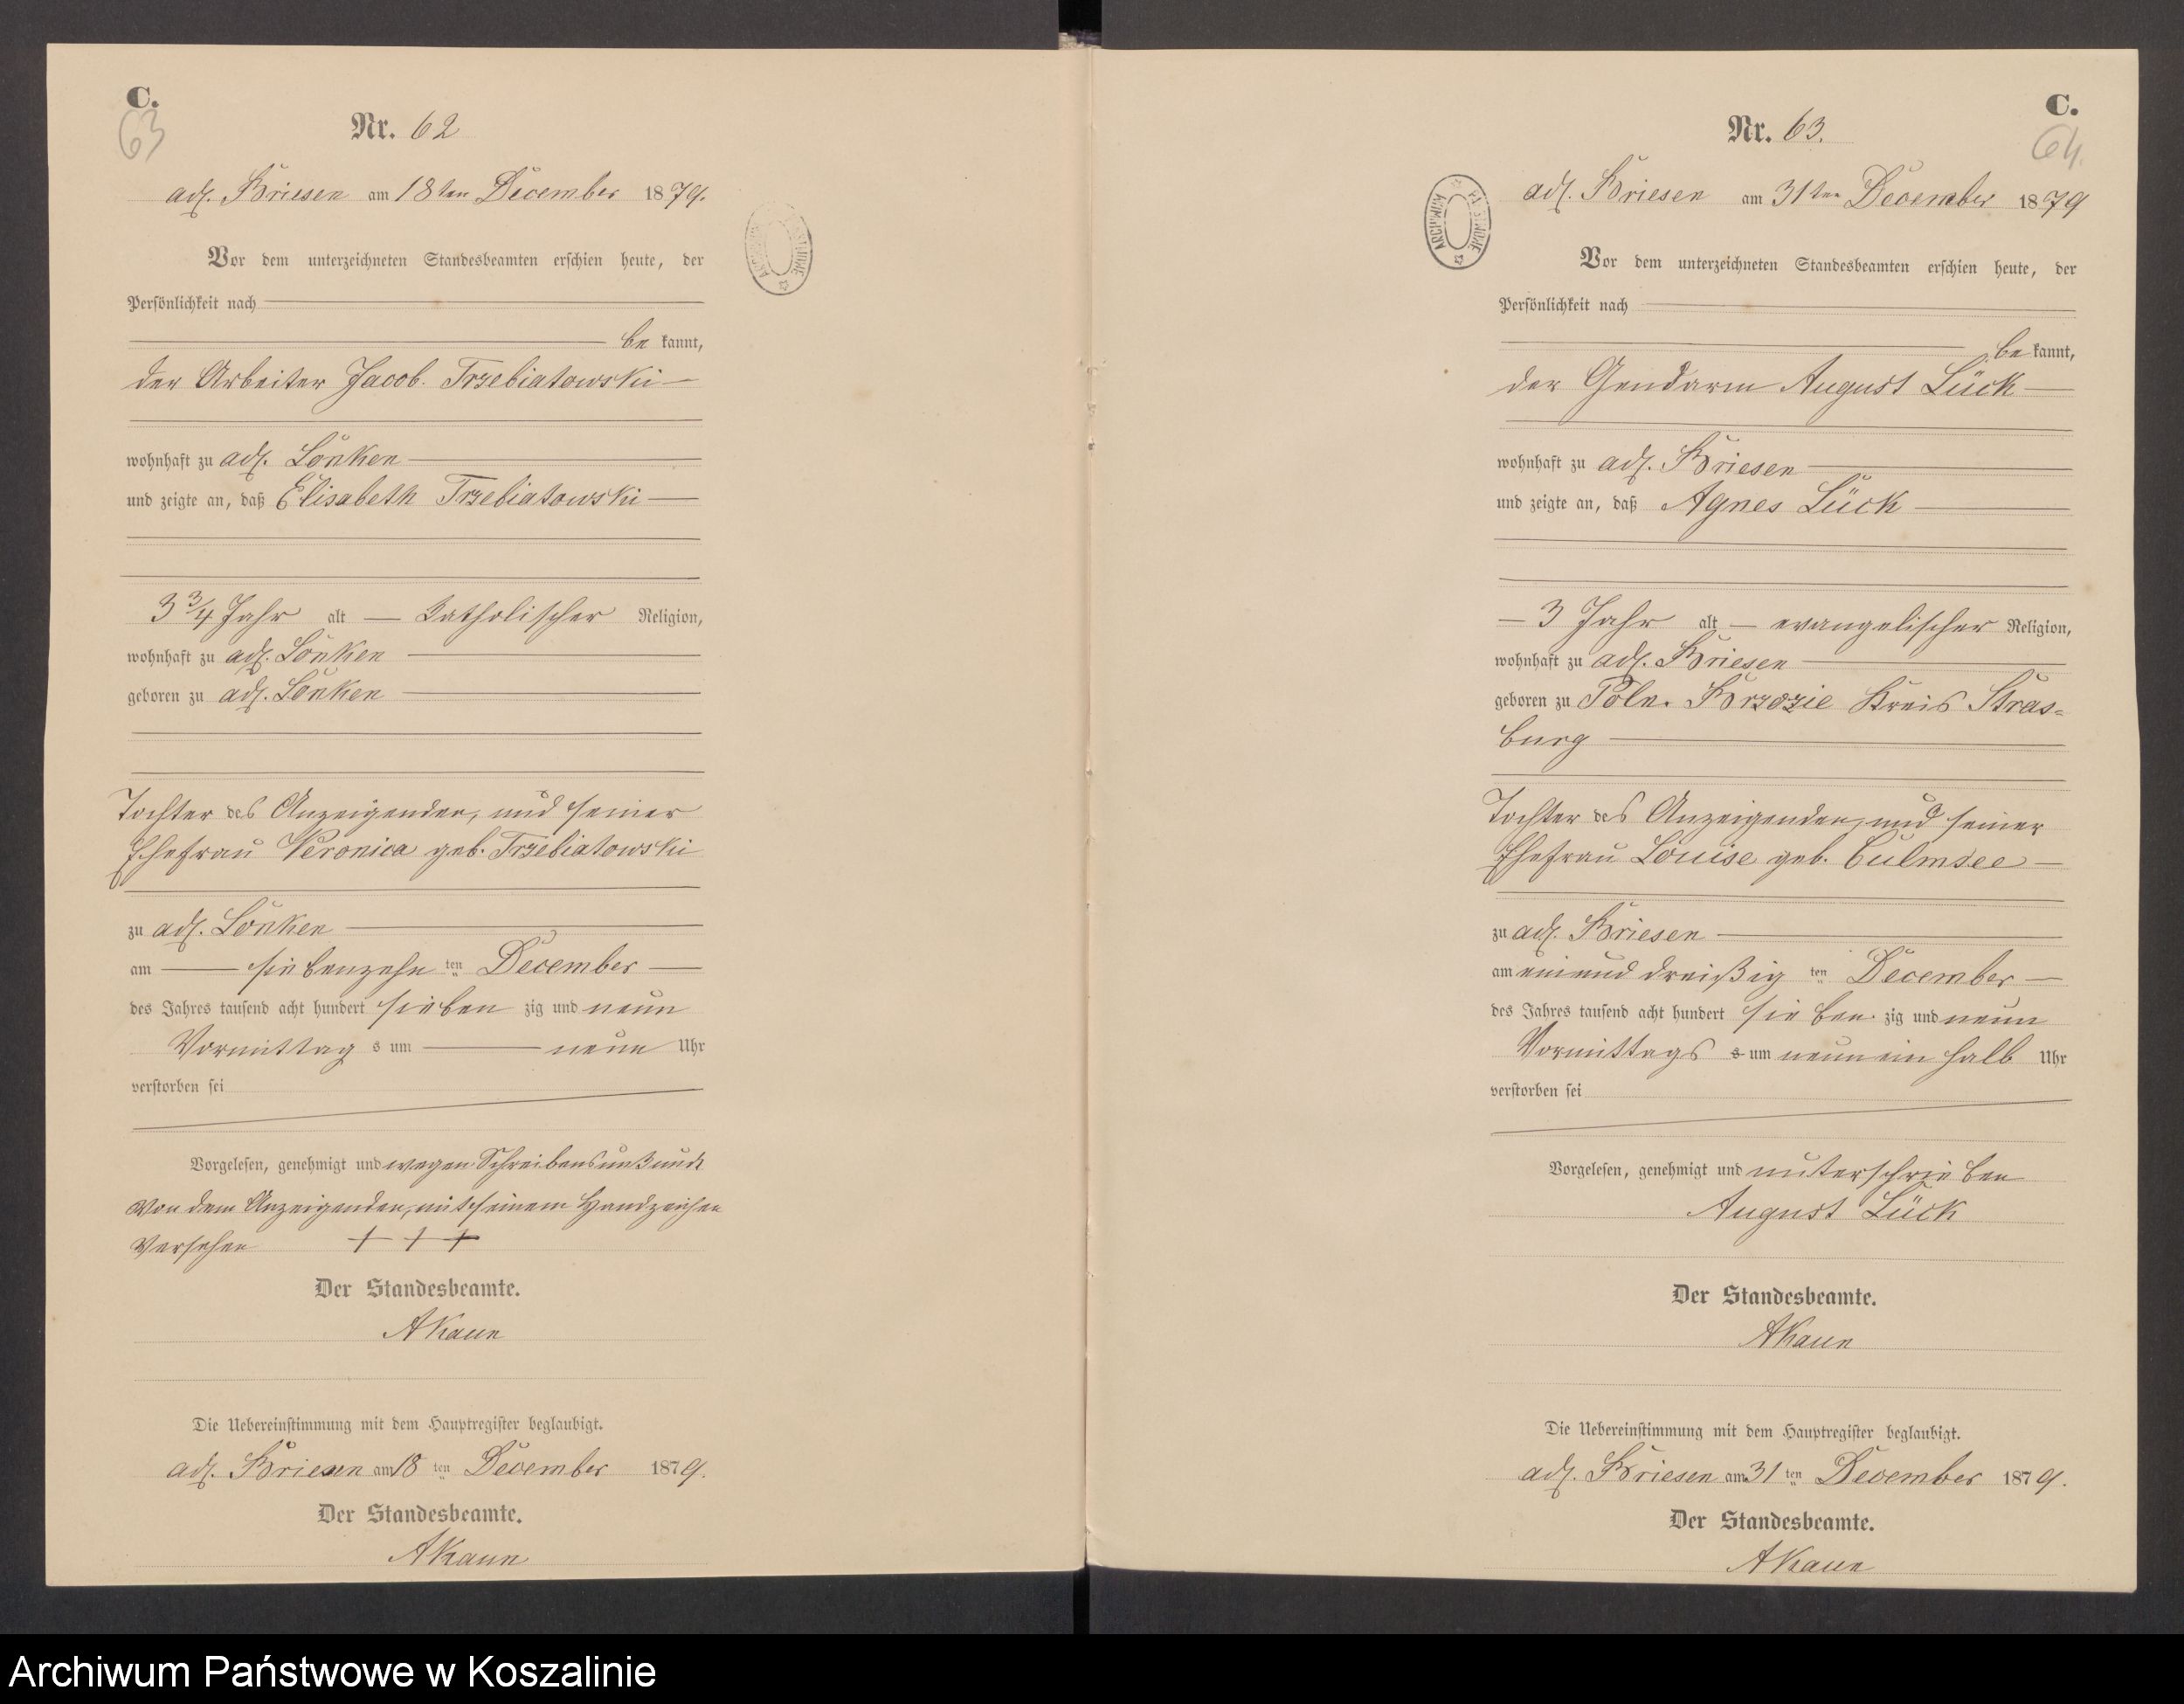 C.
63
Nr. 62
adl. Briesen am 18ten December 1879.
Vor dem unterzeichneten Standesbeamten erschien heute, der
Persönlichkeit nach
be kannt,
der Arbeiter Jacob Trzebiatowski
wohnhaft zu adl. Lonken
und zeigte an, daß Elisabeth Trzebiatowski
3 3/4 Jahr alt Katholischer Religion,
wohnhaft zu adl. Lonken
geboren zu adl. Lonken
Tochter des Anzeigenden, und seiner
Ehefrau Veronica geb. Trzebiatowski
zu adl. Lonken
am siebenzehn ten December
des Jahres tausend acht hundert sieben zig und neun
Vormittag s um neun Uhr
verstorben sei
Vorgelesen, genehmigt und wegen Schreibensunkund
von dem Anzeigenden, mit seinem Handzeichen
versehen + + +
Der Standesbeamte.
AKaun
Die Uebereinstimmung mit dem Hauptregister beglaubigt.
adl. Briesen am 18 ten December 1879.
Der Standesbeamte.
AKaun
C.
64
Nr. 63.
ARCHIWUM PAŃSTWOWE
adl. Briesen am 31ten December 1879
Vor dem unterzeichneten Standesbeamten erschien heute, der
Persönlichkeit nach
be kannt,
der Gendarm August Lück
wohnhaft zu adl. Briesen
und zeigte an, daß Agnes Lück
3 Jahr alt evangelischer Religion,
wohnhaft zu adl. Briesen
geboren zu Poln. Brzozie Kreis Stras-
burg
Tochter des Anzeigenden, und seiner
Ehefrau Louise geb. Culmsee
zu adl. Briesen
am einund dreißig ten December
des Jahres tausend acht hundert sieben zig und neun
Vormittags s um neun ein halb Uhr
verstorben sei
Vorgelesen, genehmigt und unterschrieben
August Lück
Der Standesbeamte.
AKaun
Die Uebereinstimmung mit dem Hauptregister beglaubigt.
adl. Briesen am 31 ten December 1879.
Der Standesbeamte.
AKaun
Archiwum Państwowe w Koszalinie